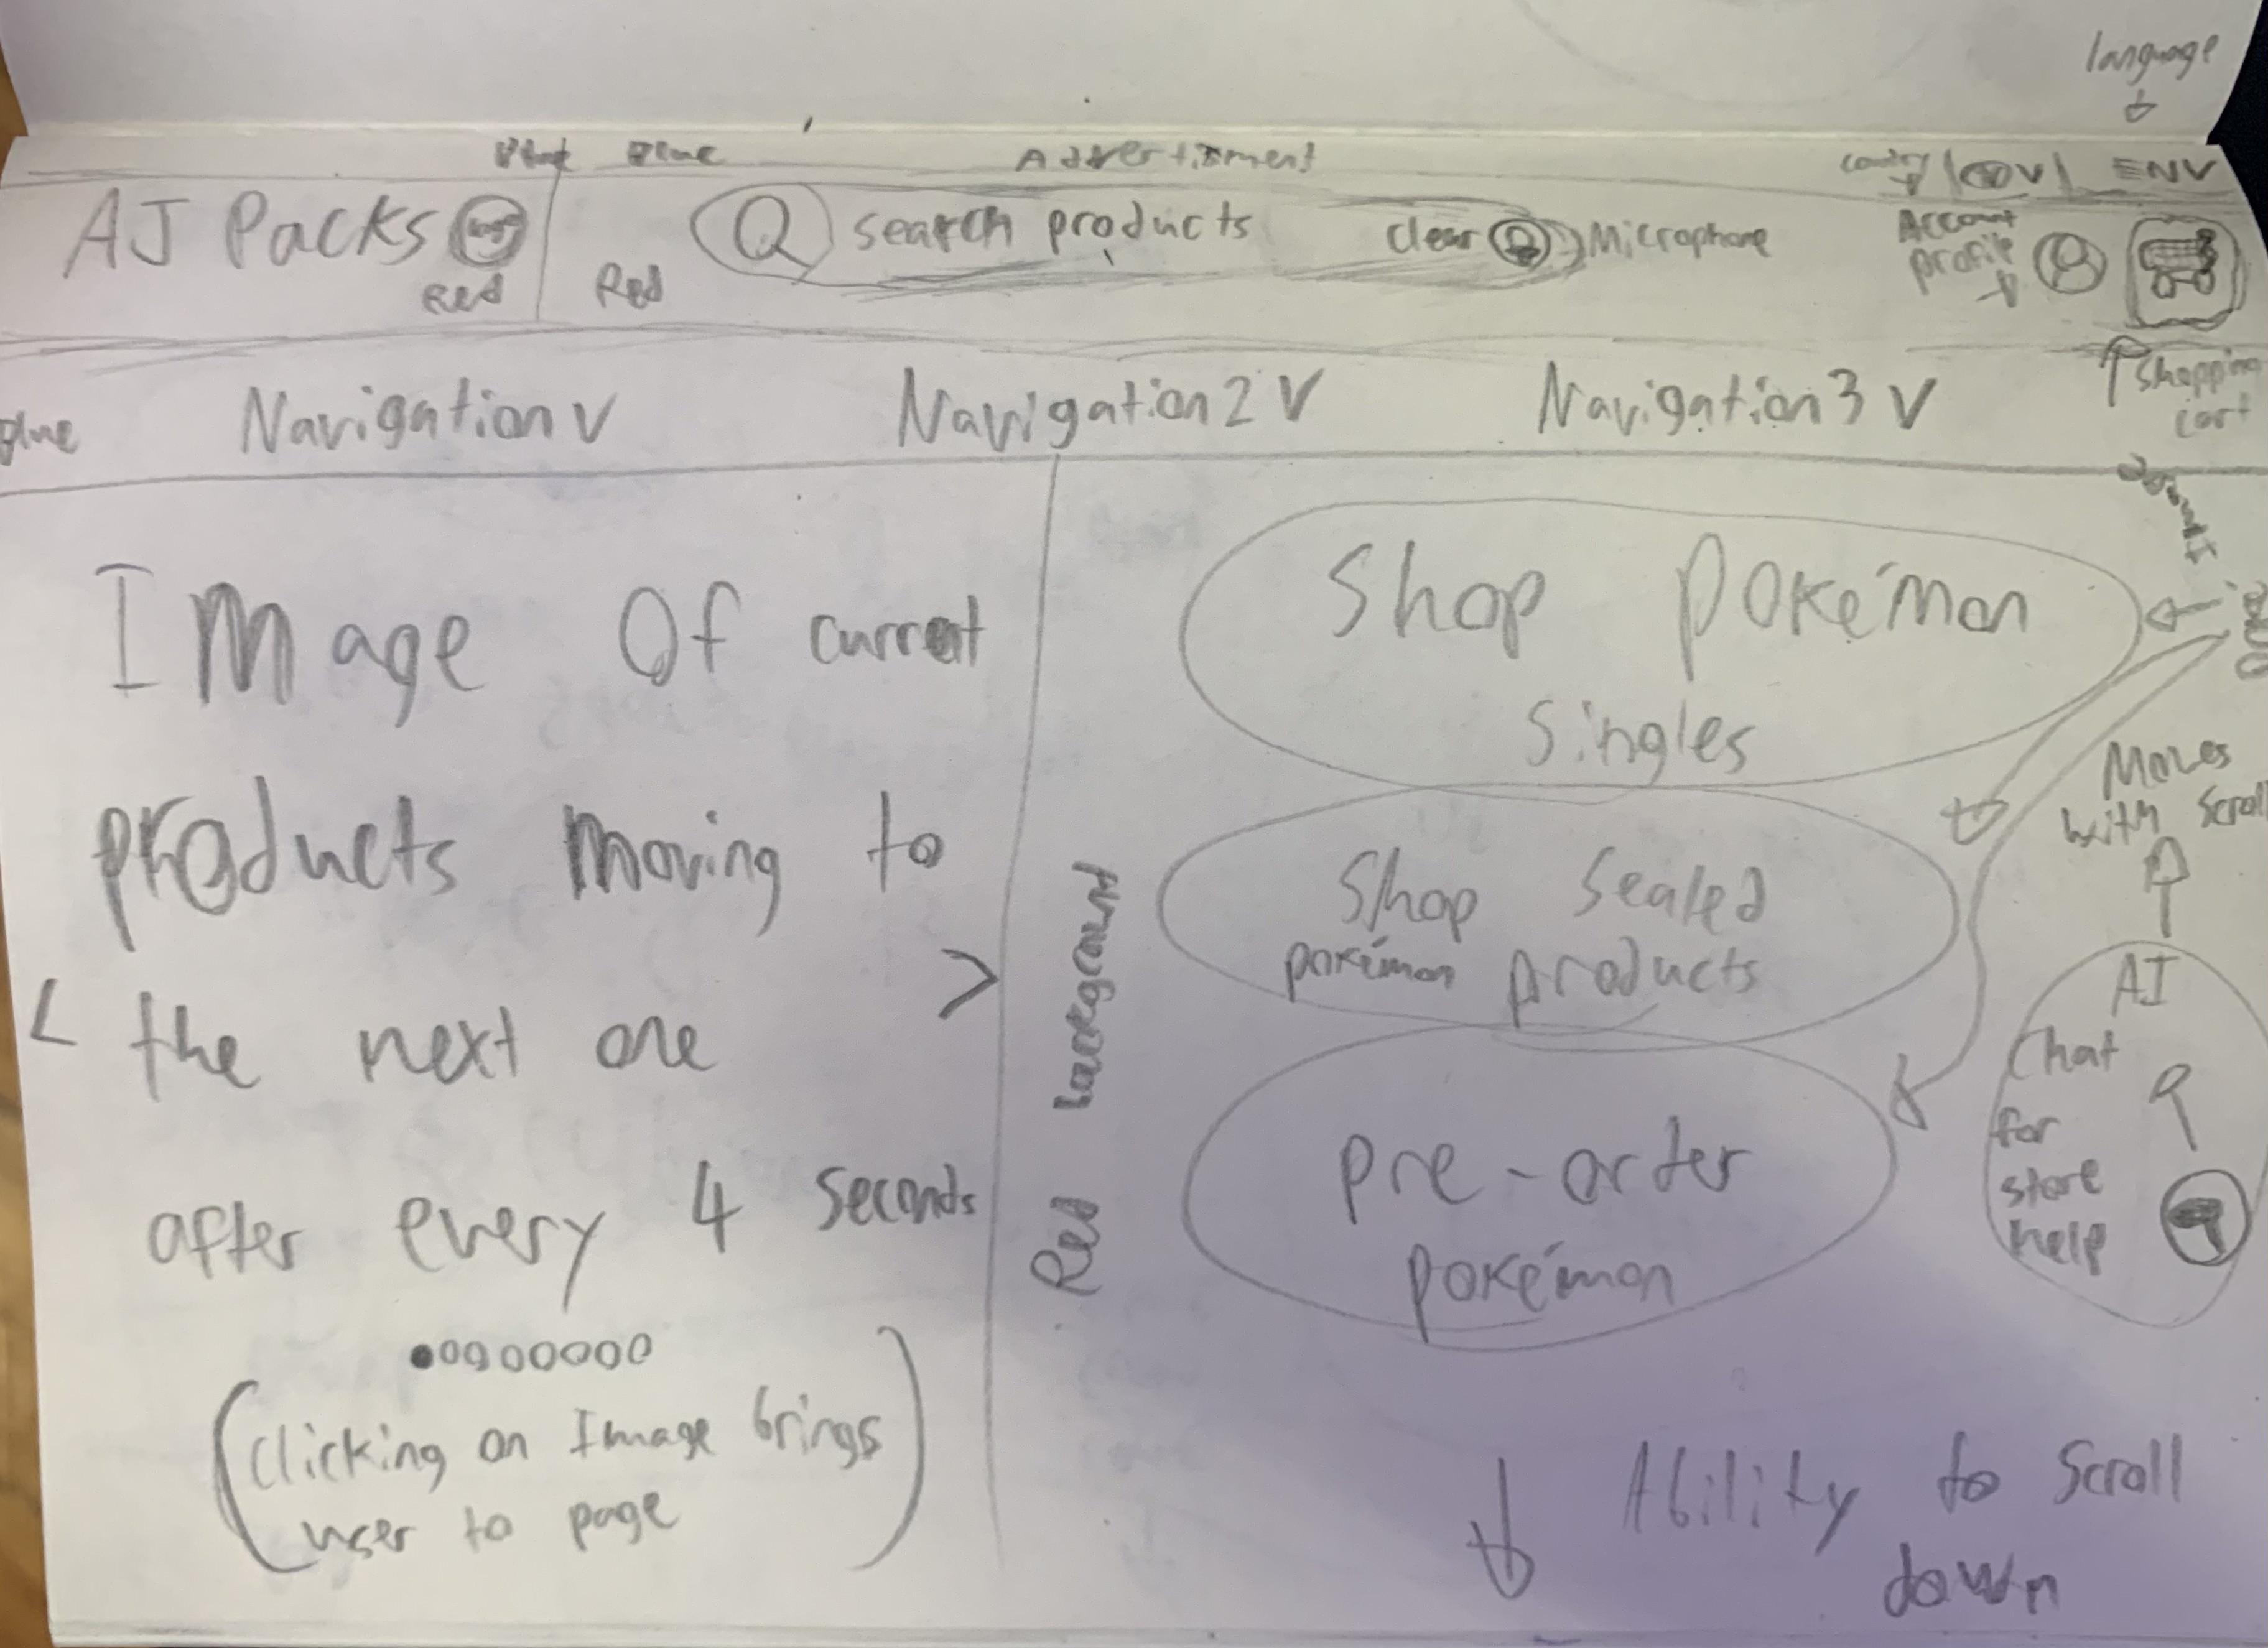 language
Blue Advertisment country V ENV
AJ Packs logo search products clear Microphone Account
profile
Red Red
Shopping
cart
Blue Navigation V Navigation 2 V Navigation 3 V
Image Of current
products moving to
< the next one >
after every 4 seconds
(clicking on Image brings
user to page)
Red background
Shop pokémon
Singles
Shop Sealed
pokémon products
pre-order
pokémon
Moves
with scroll
AI
Chat
for
store
help
Ability to Scroll
down